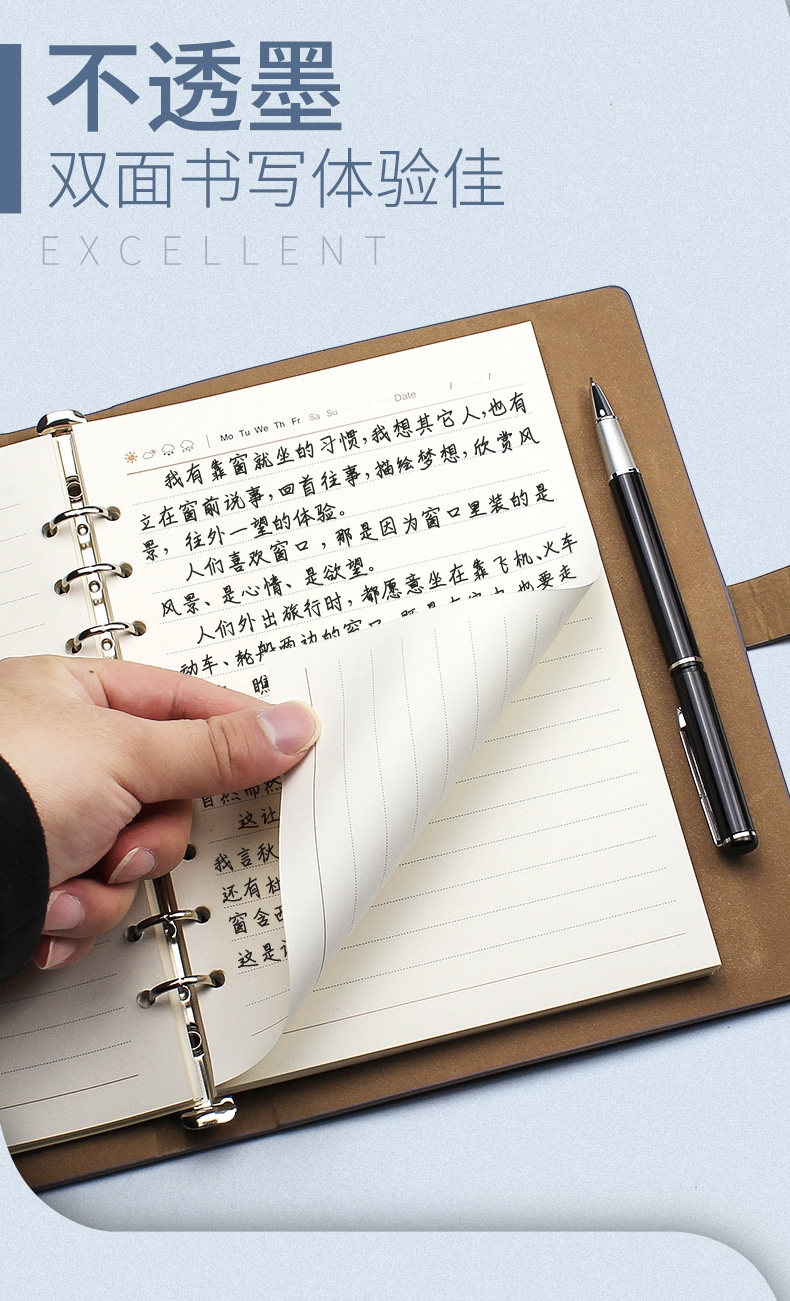 不透墨
双面书写体验佳
EXCELLENT
Mo Tu We Th Fr Sa Su
Date / /
我有靠窗就坐的习惯,我想其它人,也有
立在窗前说事,回首往事,描绘梦想,欣赏风
景,往外一望的体验。
人们喜欢窗口,那是因为窗口里装的是
风景、是心情、是欲望。
人们外出旅行时,都愿意坐在靠飞机、火车
动车、轮船两边的窗口 也要走
瞧
自然而然
这让
我言秋
还有杜
窗含西
这是